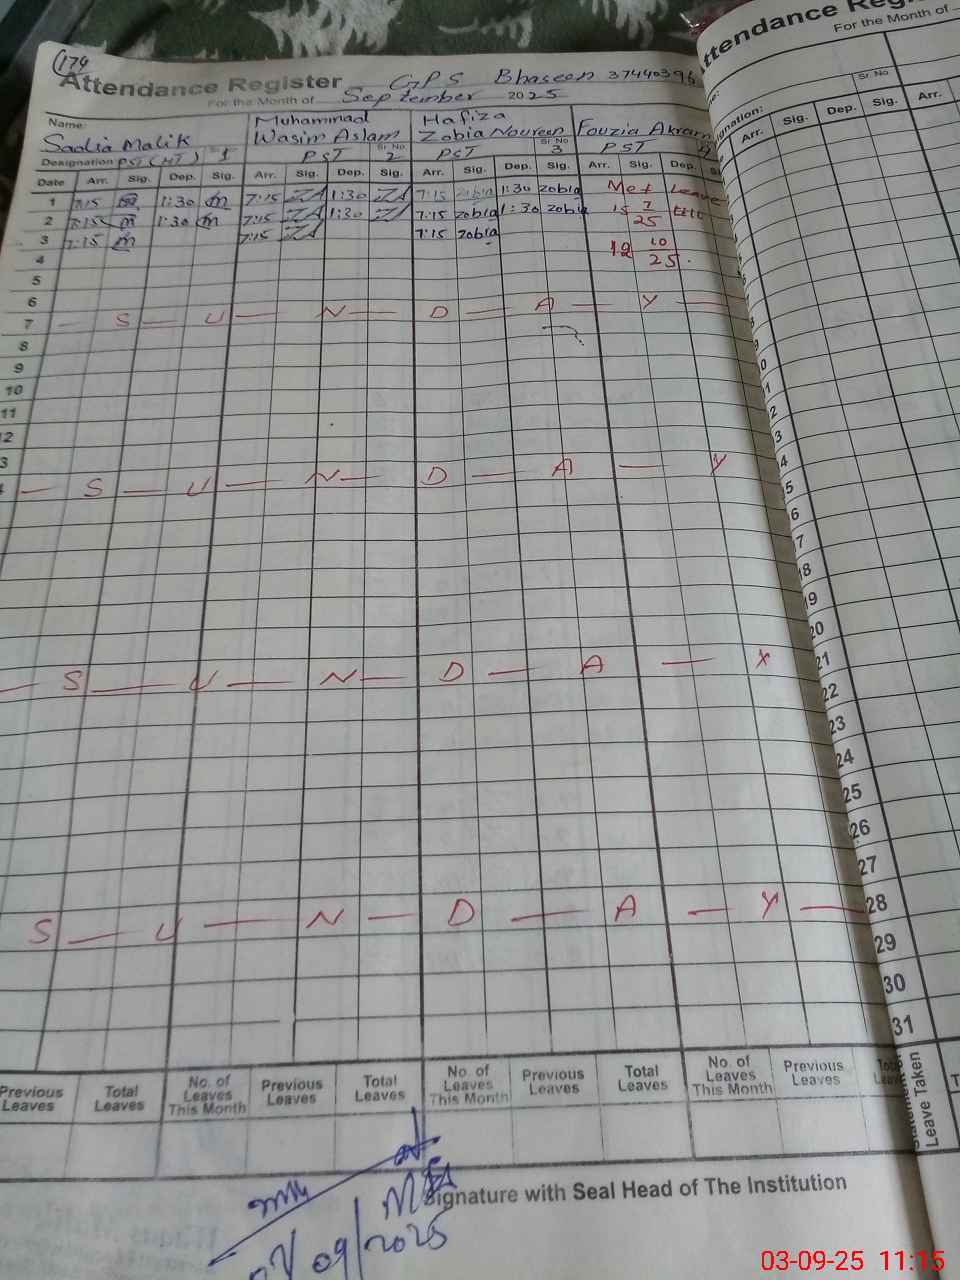 174
Attendance Register GPS Bhaseen 37440396
For the Month of September 2025
Name: Sadia Malik Muhammad Wasim Aslam Hafiza Zobia Noureen Fouzia Akram
Designation PST (HT) 1 PST Sr. No 2 PST Sr. No 3 PST
Date Arr. Sig. Dep. Sig. Arr. Sig. Dep. Sig. Arr. Sig. Dep. Sig. Arr. Sig. Dep.
1 7:15 m 1:30 m 7:15 ZA 1:30 ZA 7:15 zobia 1:30 zobia Met Leave
2 7:15 m 1:30 m 7:15 ZA 1:30 ZA 7:15 zobia 1:30 zobia 15 7/25
3 7:15 m 7:15 ZA 7:15 zobia
4 12 10/25.
5
6
7 — S — U — N — D — A — Y —
8
9
10
11
12
13
14 — S — U — N — D — A — Y
— S — U — N — D — A — Y
S — U — N — D — A — Y —
Previous Leaves Total Leaves No. of Leaves This Month Previous Leaves Total Leaves No. of Leaves This Month Previous Leaves Total Leaves No. of Leaves This Month Previous Leaves
Signature with Seal Head of The Institution
09/2025
Attendance Reg
For the Month of
Sr. No.
Arr. Sig. Dep. Sig. Arr.
15
16
17
18
19
20
21
22
23
24
25
26
27
28
29
30
31
Leave Taken
03-09-25 11:15